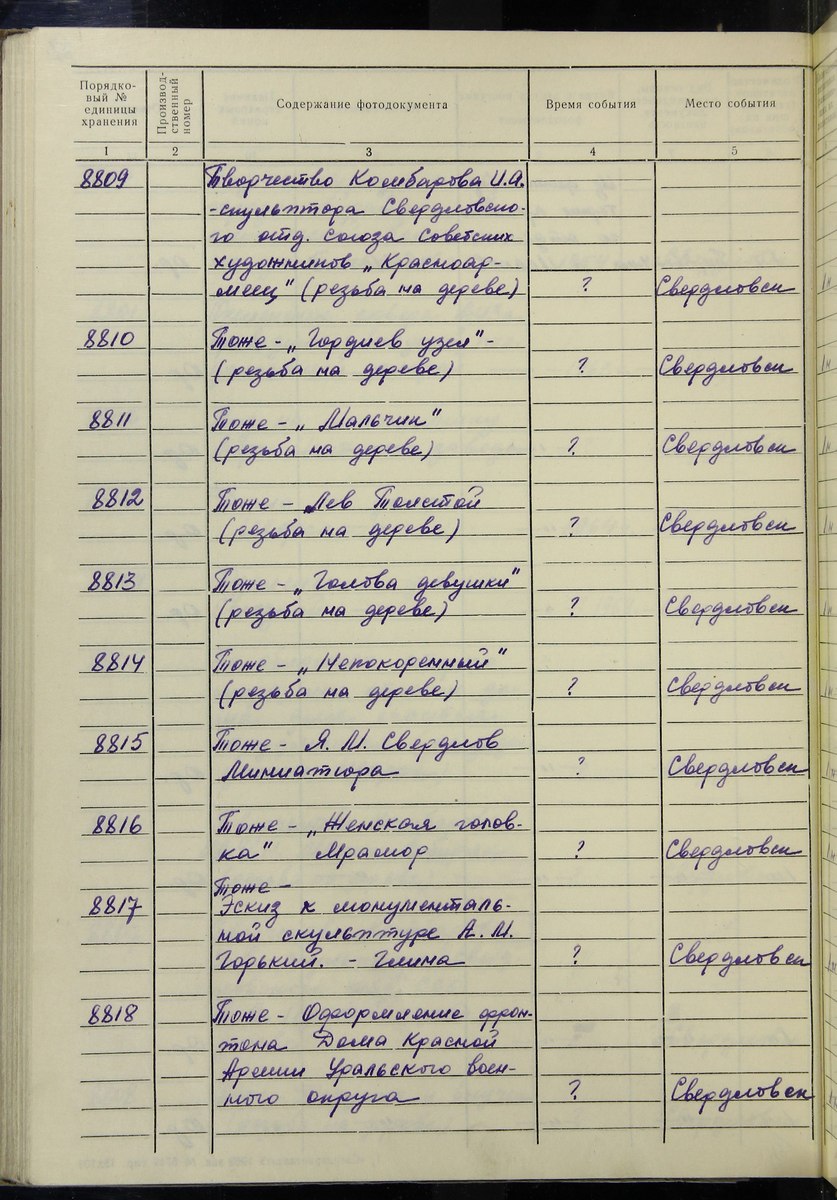 Порядко-
вый №
единицы
хранения
Производ-
ственный
номер
Содержание фотодокумента
Время события
Место события
1
2
3
4
5
8809
Творчество Камбарова И.А.
-скульптора Свердловско-
го отд. союза советских
художников „Красноар-
меец" (резьба на дереве)
?
Свердловск
8810
Тоже - „Гордиев узел"-
(резьба на дереве)
?
Свердловск
8811
Тоже - „Мальчик"
(резьба на дереве)
?
Свердловск
8812
Тоже - „Лев Толстой
(резьба на дереве)
?
Свердловск
8813
Тоже - „Голова девушки"
(резьба на дереве)
?
Свердловск
8814
Тоже - „Непокоренный"
(резьба на дереве)
?
Свердловск
8815
Тоже - Я. М. Свердлов
Миниатюра
?
Свердловск
8816
Тоже - „Женская голов-
ка" Мрамор
?
Свердловск
Тоже -
8817
Эскиз к монументаль-
ной скульптуре А. М.
Горький. - Глина
?
Свердловск
8818
Тоже - Оформление фрон-
тона Дома Красной
Армии Уральского воен-
ного округа
?
Свердловск